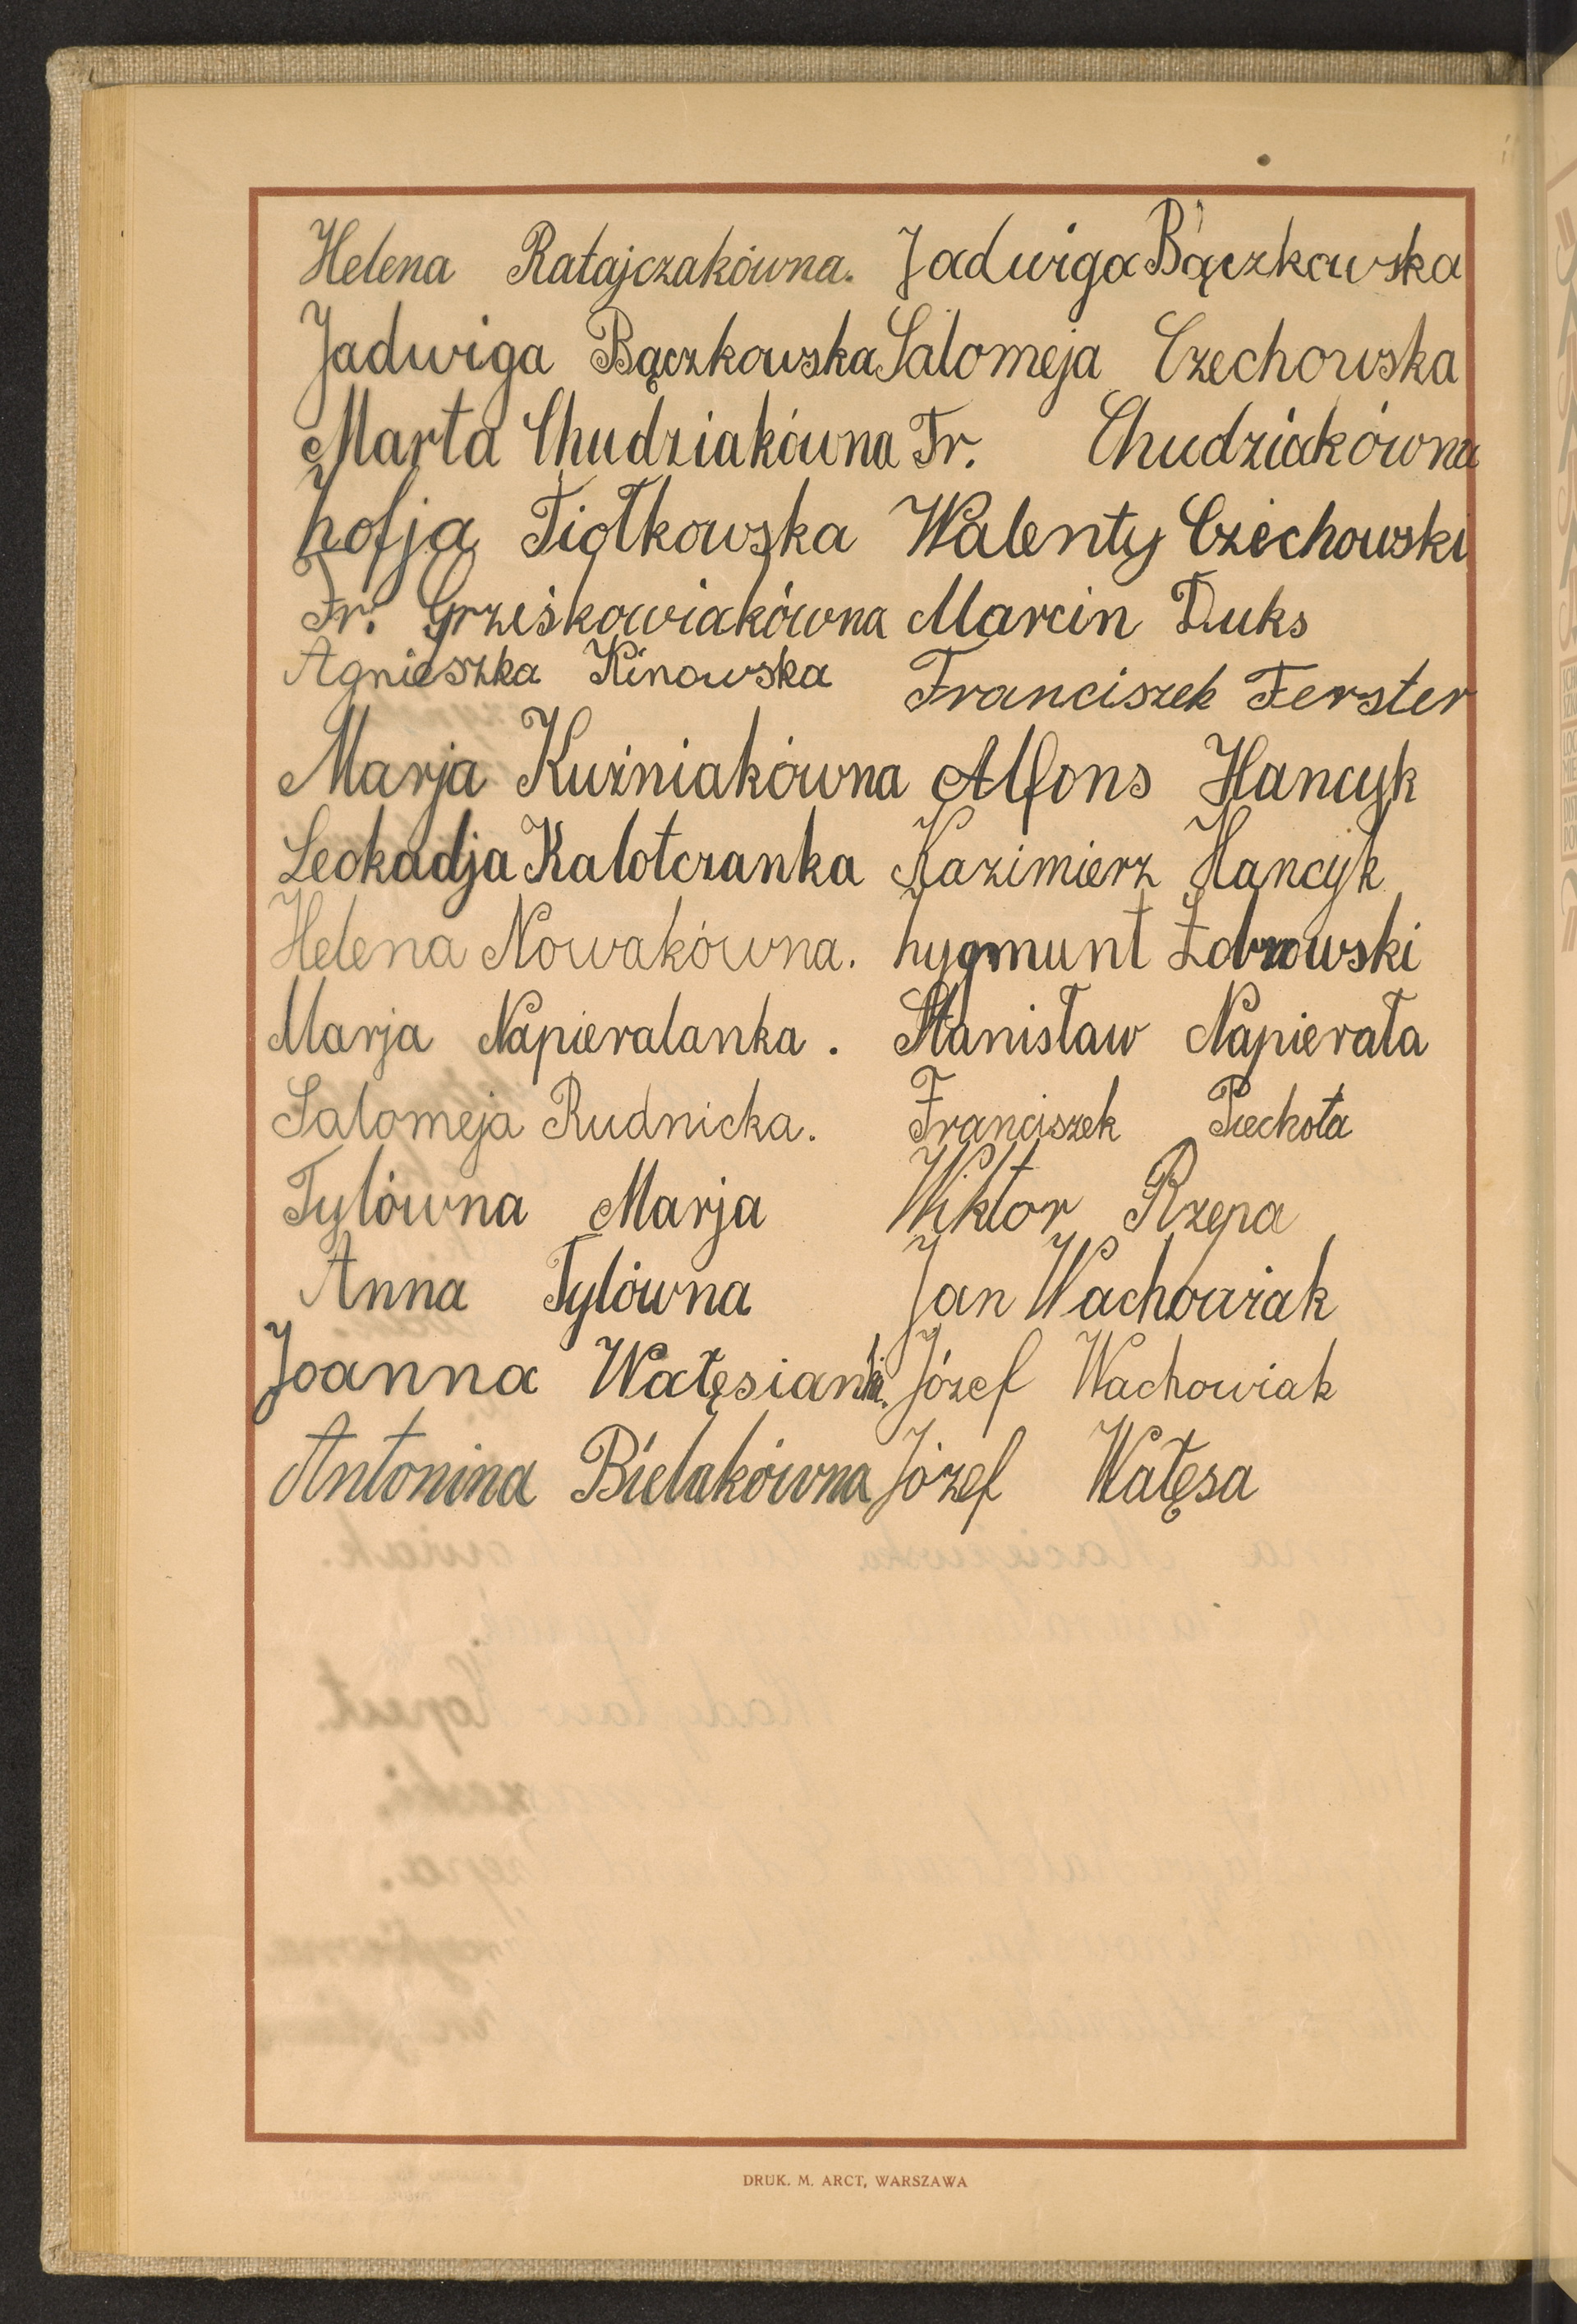 Helena Ratajczakówna. Jadwiga Bączkowska
Jadwiga Bączkowska Salomeja Czechowska
Marta Chudziakówna Fr. Chudziakówna
Zofja Fiołkowska Walenty Czechowski
Fr. Grześkowiakówna Marcin Duks
Agnieszka Kinowska Franciszek Ferster
Marja Kuźniakówna Alfons Hancyk
Leokadja Kalotczanka Kazimierz Hancyk
Helena Nowakówna. Zygmunt
Marja Napieralanka. Stanisław Napierała
Salomeja Rudnicka. Franciszek Piechota
Tylówna Marja Wiktor Rzepa
Anna Tylówna Jan Wachowiak
Joanna Wałęsianka. Józef Wachowiak
Antonina Bielakówna Józef Wałęsa
DRUK. M. ARCT, WARSZAWA